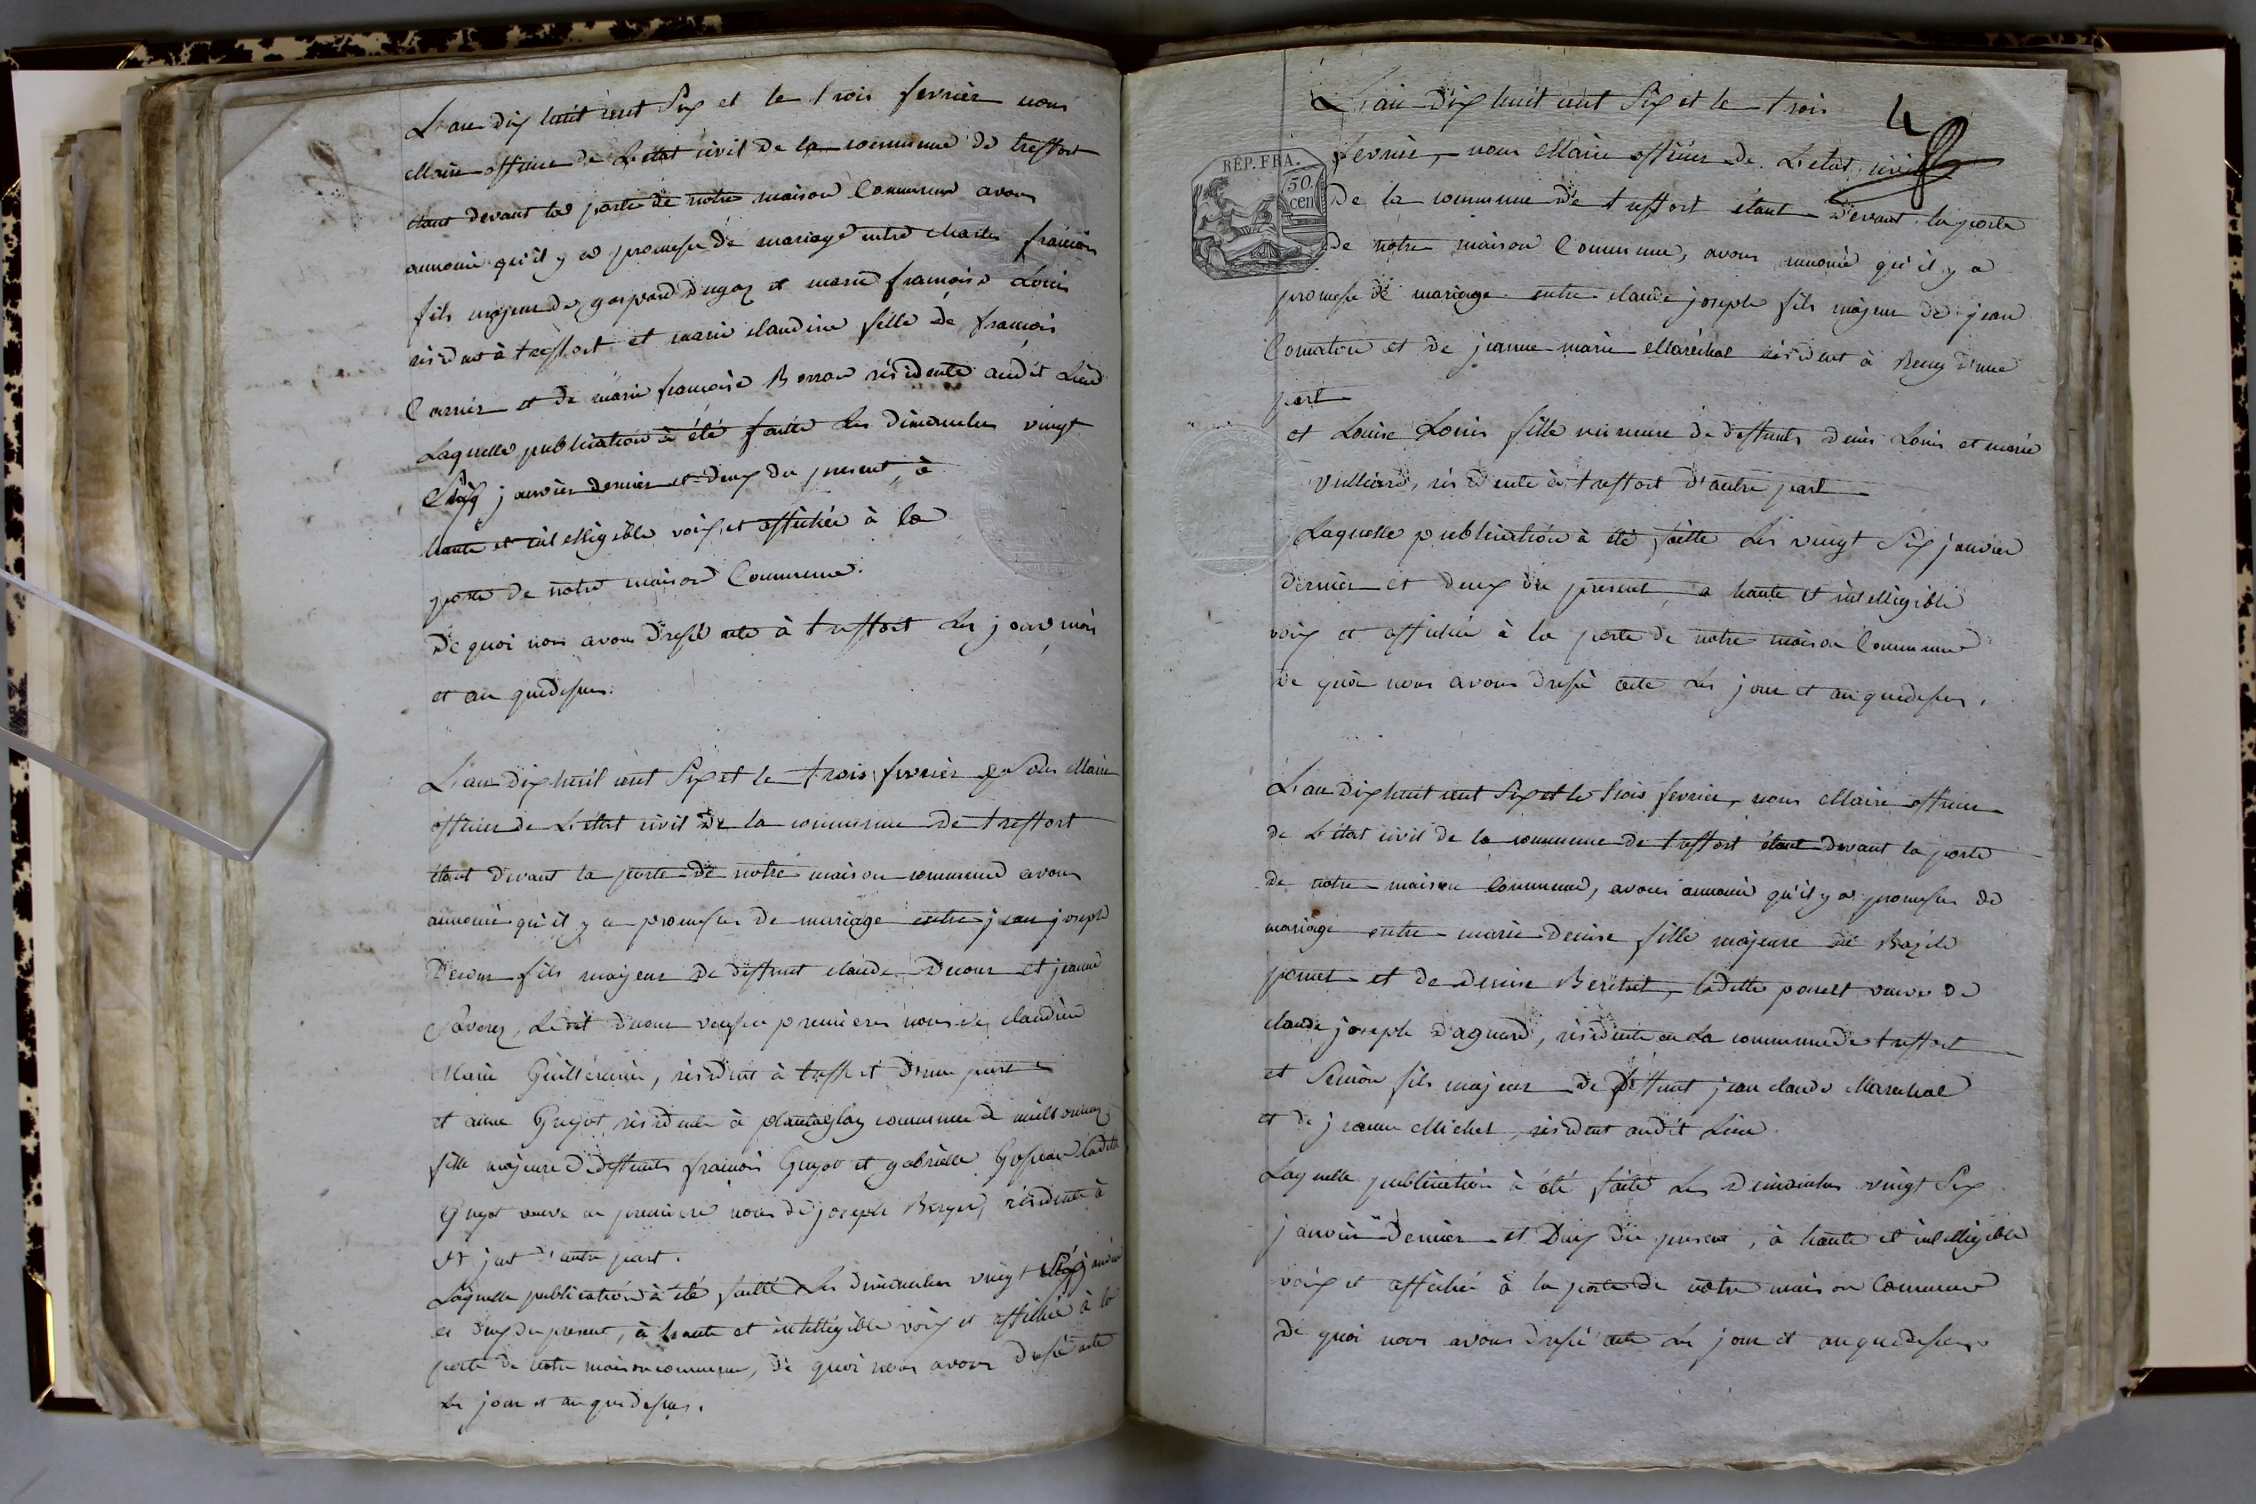 L'an dix huit cent Six et le trois fevrier nous
Maire officier de L'état civil de la commune de treffort
étant devant la porte de notre maison Commune avons
annoncé qu'il y a promesse de mariage entre Charles françois
fils majeur de gaspard dugas et marie françoise Louis
résident à treffort et marie claudine fille de françois
Carrier et de marie françoise Berrod résidente audit Lieu
Laquelle publication à été faitte Les dimanches vingt
Six janvier dernier et deux du present à
haute et intelligible voix, et affichée à la
porte de notre maison Commune.
De quoi nous avons dressé acte à treffort Les jour, mois
et an quedessus.
L'an dix huit cent Six et le trois fevrier nous Maire
officier de L'état civil de la commune de treffort
étant devant la porte de notre maison commune avons
annoncé qu'il y a promesse de mariage entre jean joseph
fils majeur de deffunt claude et jeanne
Ledit veuf en premieres noces de claudine
Marie résident à treffort d'une part
et anne Guyot résidente à commune de
fille majeure de deffunts françois Guyot et gabrielle ladite
Guyot veuve en premiere noces de joseph Berger, résidente à
d'autre part.
Laquelle publication à été faitte Les dimanches vingt Six janvier
et deux du present, à haute et intelligible voix et affichée à la
porte de notre maison commune, de quoi nous avons dressé acte
Les jour et an que dessus.
4
L'an dix huit cent Six et le trois
fevrier, nous Maire officier de L'état civil
RÉP. FRA.
50. cen
De la commune de treffort étant devant la porte
de notre maison Commune, avons annoncé qu'il y a
promesse de mariage entre claude joseph fils majeur de jean
et de jeanne marie Maréchal résident à d'une
part
et Louise Louis fille mineure de deffunts denis Louis et marie
Vulliard, résidente à treffort d'autre part
Laquelle publication à été faitte Les vingt Six janvier
dernier et deux du present, a haute et intelligible
voix et affichée à la porte de notre maison Commune
de quoi nous avons dressé acte Les jour et an quedessus.
L'an dix huit cent Six et le trois fevrier, nous Maire officier
de L'état civil de la commune de treffort étant devant la porte
de notre maison Commune, avons annoncé qu'il y a promesse de
mariage entre marie denise fille majeure de Bazile
ponset et de denise ladite ponset veuve de
claude joseph daguerd, résidente en La commune de treffort
et Simon fils majeur de deffunt jean claude Marechal
et de jeanne Michel, résident audit Lieu
Laquelle publication à été faite Les dimanches vingt Six
janvier dernier et Deux du present, à haute et intelligible
voix et affichée à la porte de notre maison Commune
De quoi nous avons dressé acte Les jour et an quedessus